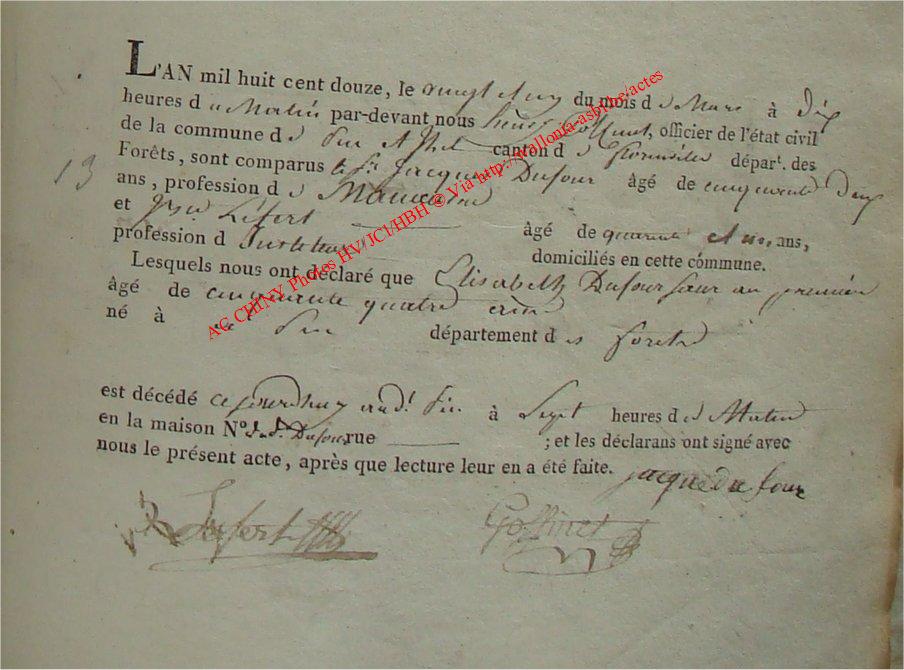 L'AN mil huit cent douze, le vingt et un du mois de Mars à dix
heures du Matin par-devant nous henri Goffinet, officier de l'état civil
de la commune de canton de florenville dépar.t des
Forêts, sont comparus le Sr. Jacques Dufour âgé de cinquante deux
13
ans, profession de
et Lefert âgé de quarante et un ans,
profession d domiciliés en cette commune.
Lesquels nous ont déclaré que Elisabeth Dufour Sœur au premier
âgé de cinquante quatre
né à Pin département des forets
est décédé cejourdhuy audt. Pin à Sept heures du Matin
en la maison No. dud. Dufour rue ; et les déclarans ont signé avec
nous le présent acte, après que lecture leur en a été faite.
jacque du four
Lefert
Goffinet
AC CHINY Photos HV/JC1/HBH © Via http://wallonia-asbl.be/actes